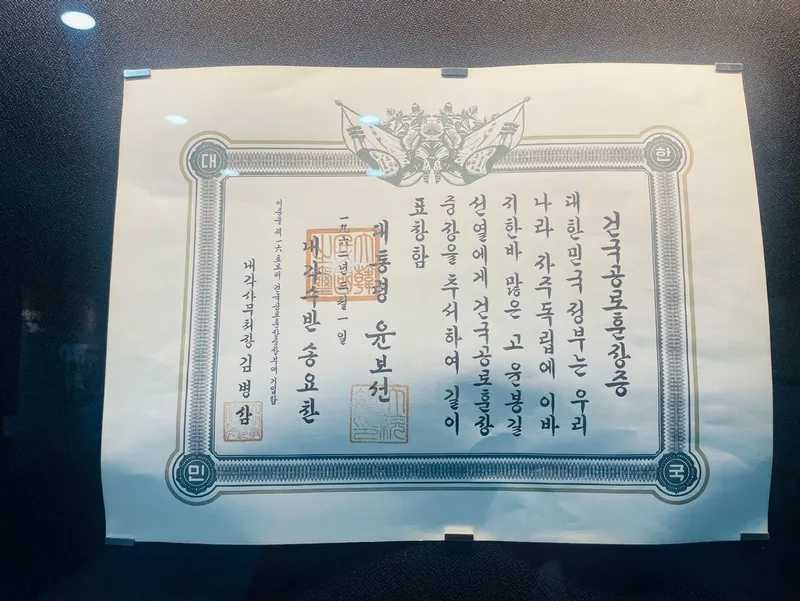 대한민국
건국공로훈장증
대한민국 정부는 우리
나라 자주독립에 이바
지한바 많은 고 윤봉길
선열에게 건국공로훈장
중장을 추서하여 길이
표창함
대통령 윤보선
一九六二년 三월 一일
내각수반 송요찬
이증을 제 一六호로써 건국공로훈장중장부에 기입함
내각사무처장 김병삼